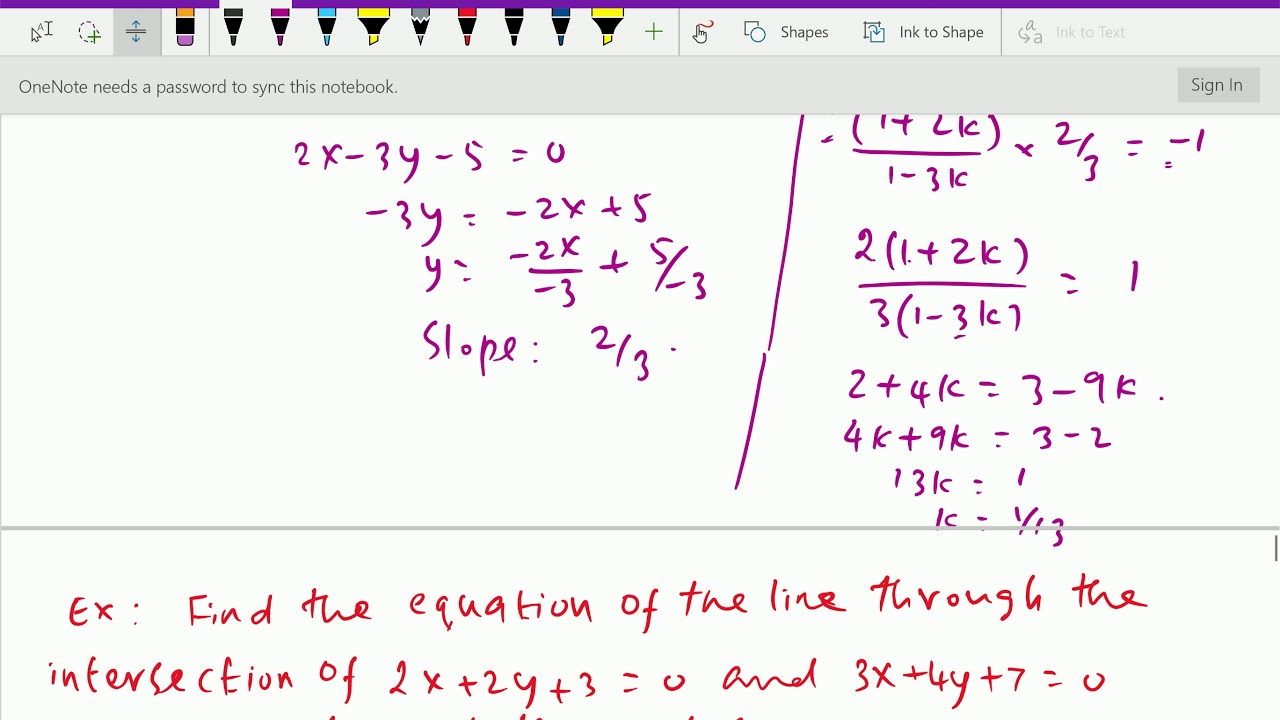 Shapes
Ink to Shape
Ink to Text
OneNote needs a password to sync this notebook.
Sign In
2x - 3y - 5 = 0
-3y = -2x + 5
y = -2x/-3 + 5/-3
Slope: 2/3.
- (1 + 2k)/1 - 3k × 2/3 = -1
2(1 + 2k)/3(1 - 3k) = 1
2 + 4k = 3 - 9k.
4k + 9k = 3 - 2
13k = 1
k = 1/13
Ex: Find the equation of the line through the
intersection of 2x + 2y + 3 = 0 and 3x + 4y + 7 = 0